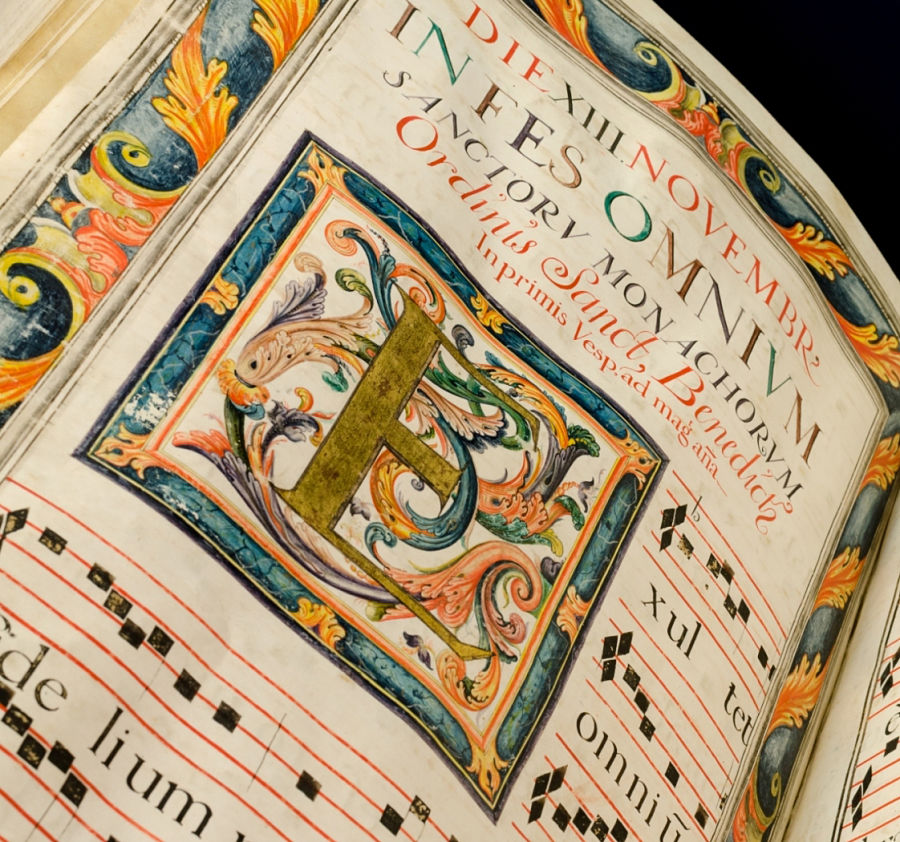 DIE XIII. NOVEMBR
IN FES OMNIVM
SANCTORV MONACHORVM
Ordinis Sanct Benedicti
In primis Vesp. ad mag aña
E
xul tet
omniū
de lium